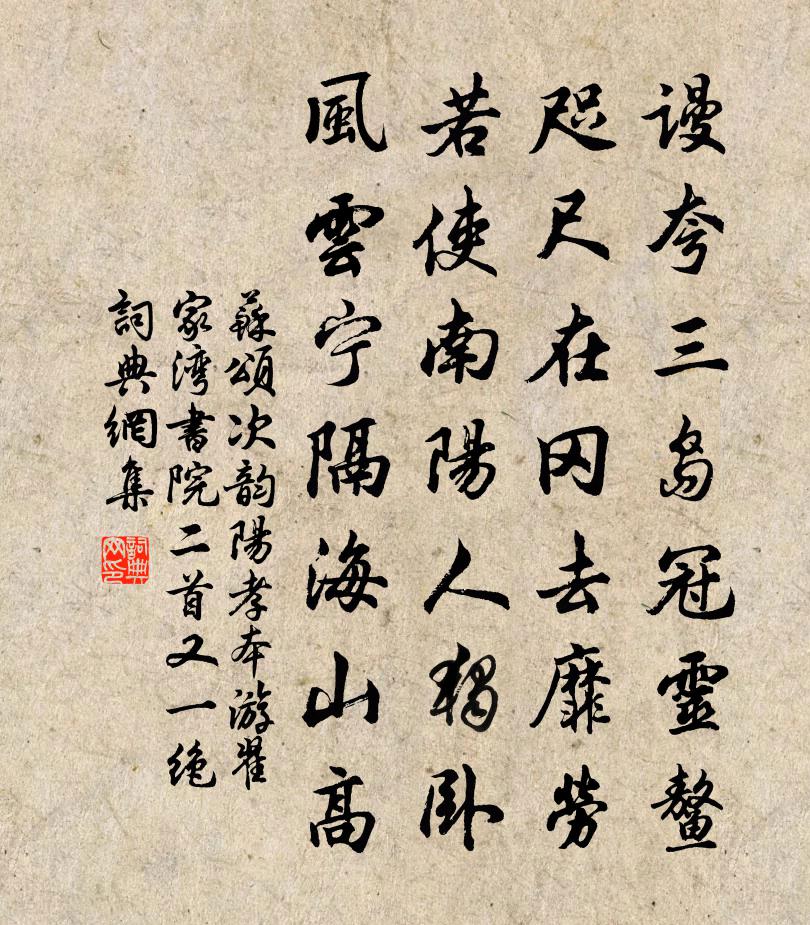 谩夸三岛冠靈鼇
咫尺在冈去靡勞
若使南陽人獨卧
風雲宁隔海山高
蘇頌次韵陽孝本游瞿
家湾書院二首又一絶
詞典網集
詞典
网印